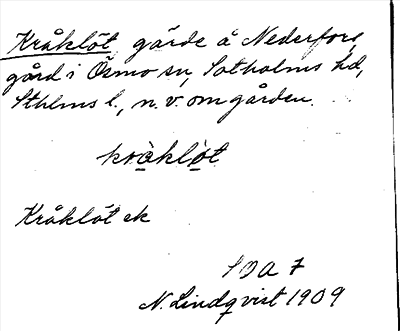 Kråklöt, gärde å Nederfors
gård i Ösmo sn, Sotholms hd,
Sthlms l., n. v. om gården.
kråklöt
Kråklöt ek
SOA 7
N. Lindqvist 1909